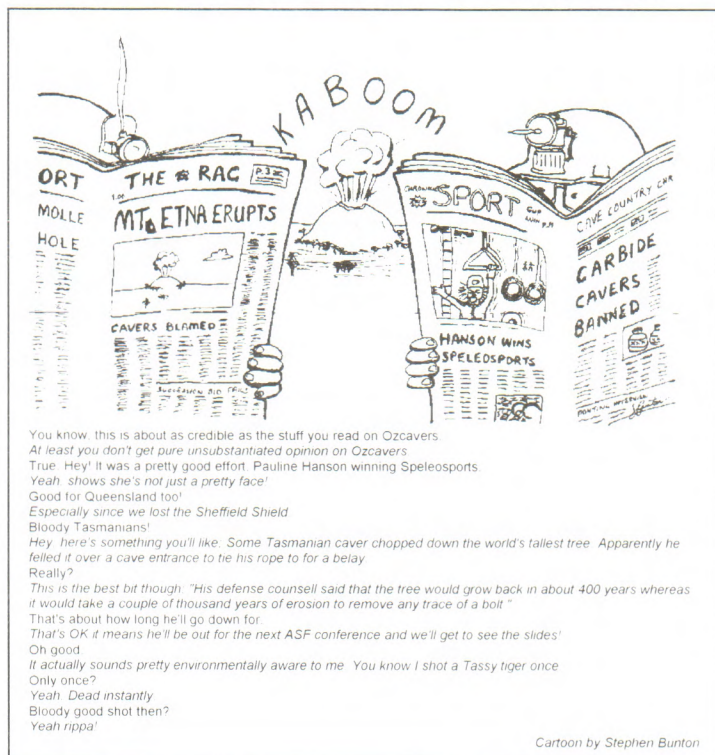 KABOOM
ORT
MOLLE
HOLE
THE RAG
P.3
MT. ETNA ERUPTS
CAVERS BLAMED
SPORT
HANSON WINS
SPELEOSPORTS
CAVE COUNTRY CHR
CARBIDE
CAVERS
BANNED
You know, this is about as credible as the stuff you read on Ozcavers.
At least you don't get pure unsubstantiated opinion on Ozcavers.
True. Hey! It was a pretty good effort. Pauline Hanson winning Speleosports.
Yeah, shows she's not just a pretty face!
Good for Queensland too!
Especially since we lost the Sheffield Shield.
Bloody Tasmanians!
Hey, here's something you'll like. Some Tasmanian caver chopped down the world's tallest tree. Apparently he
felled it over a cave entrance to tie his rope to for a belay.
Really?
This is the best bit though. "His defense counsell said that the tree would grow back in about 400 years whereas
it would take a couple of thousand years of erosion to remove any trace of a bolt."
That's about how long he'll go down for.
That's OK it means he'll be out for the next ASF conference and we'll get to see the slides!
Oh good.
It actually sounds pretty environmentally aware to me. You know I shot a Tassy tiger once.
Only once?
Yeah. Dead instantly.
Bloody good shot then?
Yeah rippa!
Cartoon by Stephen Bunton